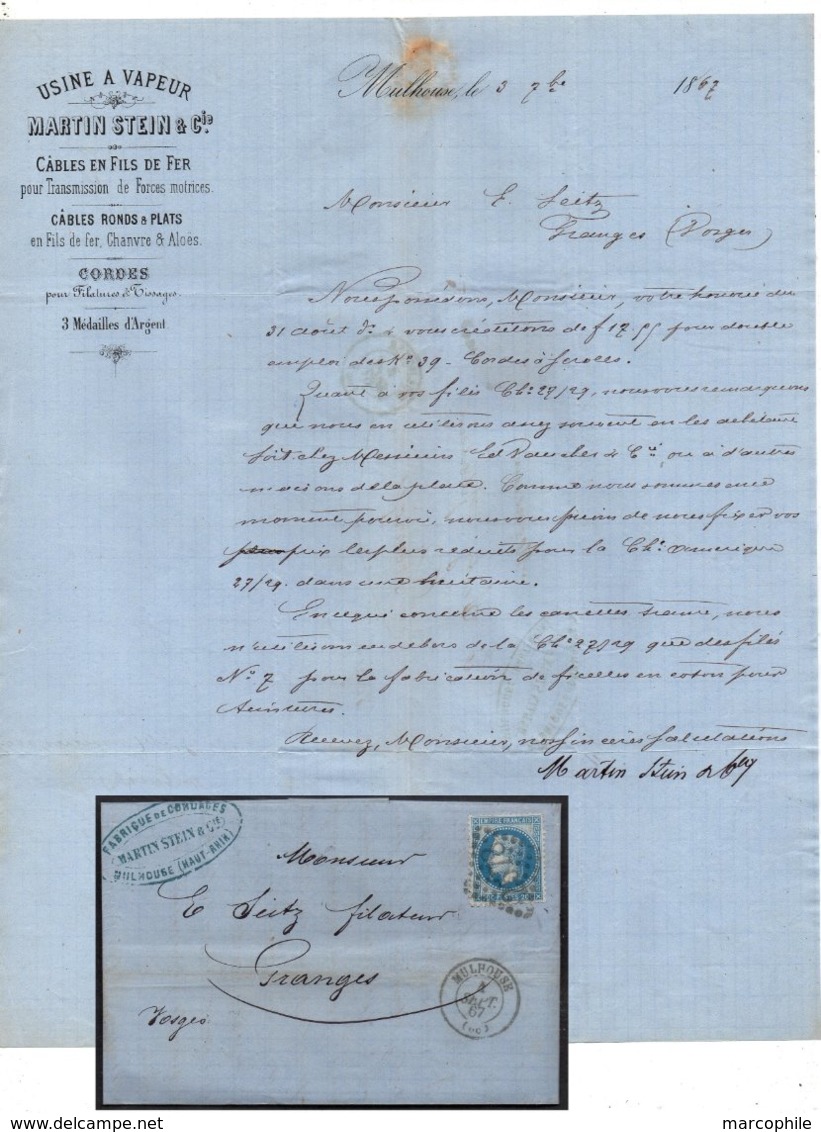 USINE A VAPEUR
MARTIN STEIN & Cie.
CÂBLES EN FILS DE FER
pour Transmission de Forces motrices.
CÂBLES RONDS & PLATS
en Fils de fer, Chanvre & Aloës.
CORDES
pour Filatures & Tissages.
3 Médailles d'Argent
Mulhouse, le 3 7bre 1867
Monsieur E. Seitz
Granges (Vosges)
Nous possédons, Monsieur, votre honorée du
31 août & vous créditons de f 17.55 pour double
emploi des No 39 - Cordes à
Quant à vos filés Ch: 27/29, nous vous remarquons
que nous en utilisons assez souvent en les achetant
soit chez Messieurs Ed Vaucher & Cie ou à d'autres
maisons de la place. Comme nous sommes en ce
moment pourvu, nous vous prions de nous fixer vos
prix les plus réduits pour la Ch: Amérique
27/29. dans une huitaine.
En ce qui concerne les canettes trame, nous
n'utilisons en dehors de la Ch: 27/29 que des filés
No 7 pour la fabrication de ficelles en coton pour
teintures.
Recevez, Monsieur, nos sincères salutations
Martin Stein & Cie
FABRIQUE DE CORDAGES
MARTIN STEIN & CIE
MULHOUSE (HAUT-RHIN)
EMPIRE FRANÇAIS
Monsieur
E Seitz filateur
Granges
Vosges
MULHOUSE
4
SEPT.
67
marcophile